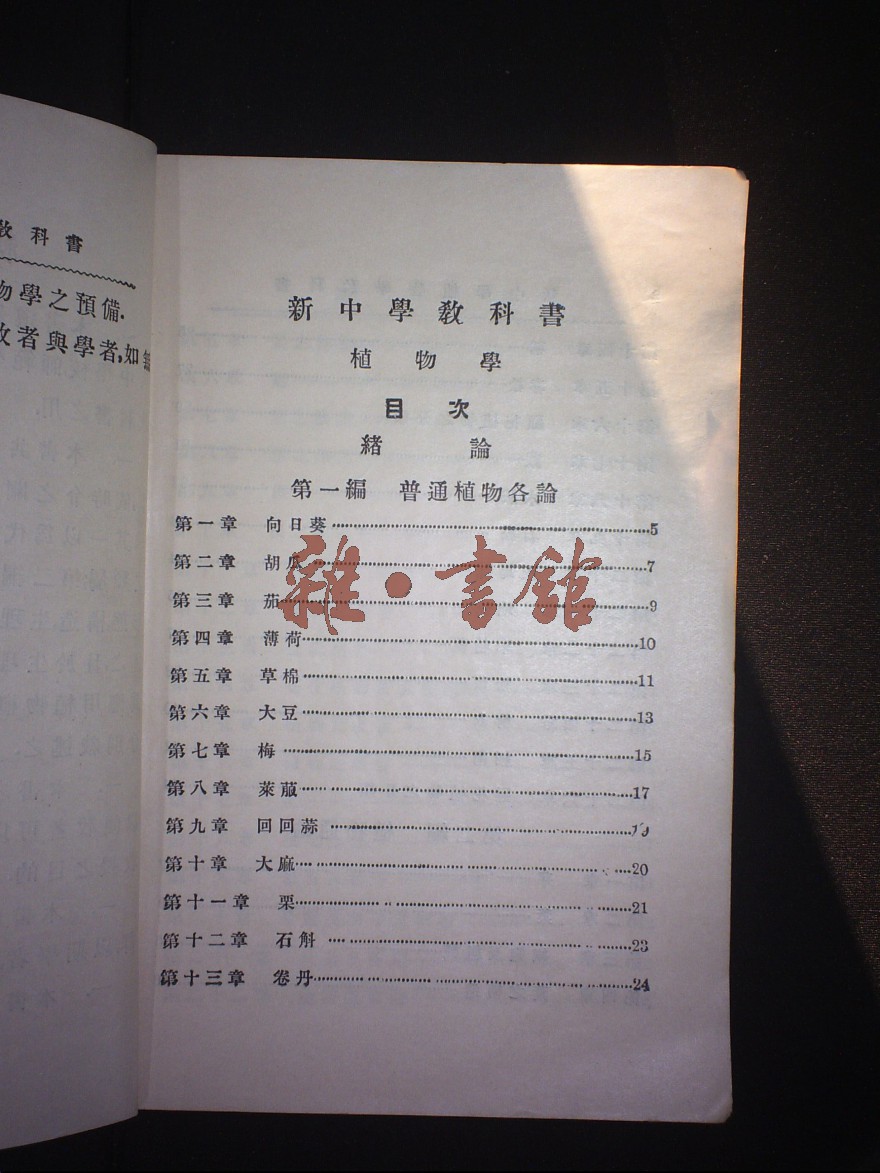 教科書
物學之預備.
教者與學者,如
新中學教科書
植物學
目次
緒論
第一編 普通植物各論
第一章 向日葵 5
第二章 胡瓜 7
第三章 茄 9
第四章 薄荷 10
第五章 草棉 11
第六章 大豆 13
第七章 梅 15
第八章 萊菔 17
第九章 回回蒜 19
第十章 大麻 20
第十一章 栗 21
第十二章 石斛 23
第十三章 卷丹 24
雜·書館